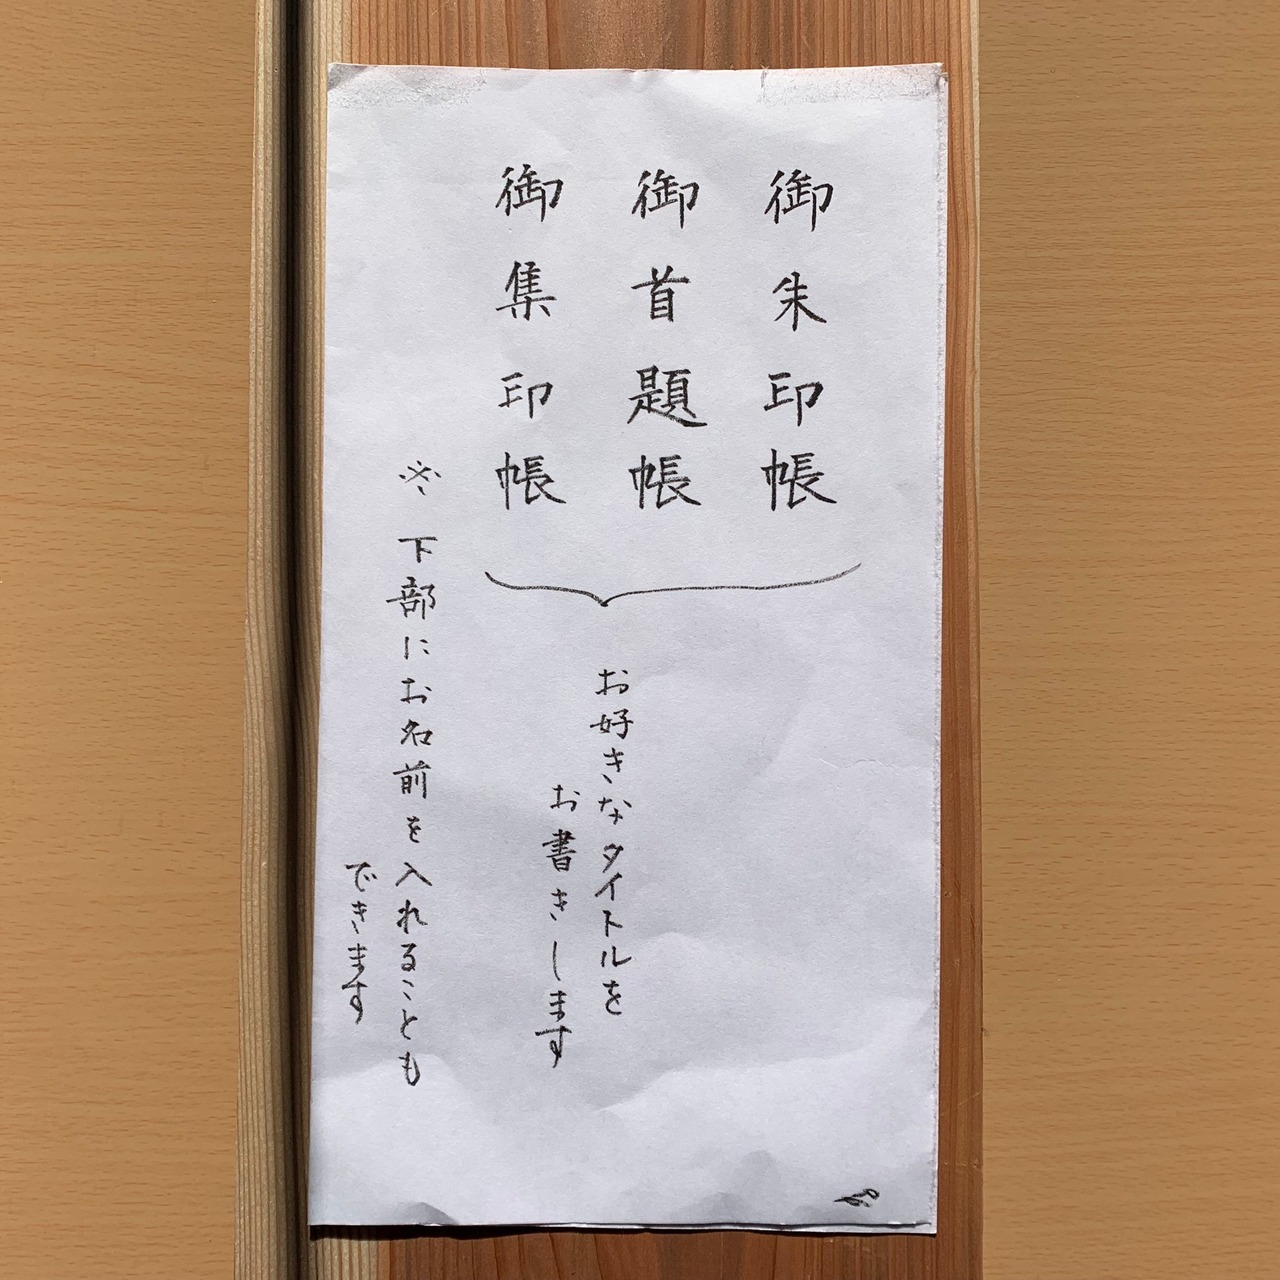 御朱印帳
御首題帳
御集印帳
お好きなタイトルを
お書きします
※下部にお名前を入れることも
できます